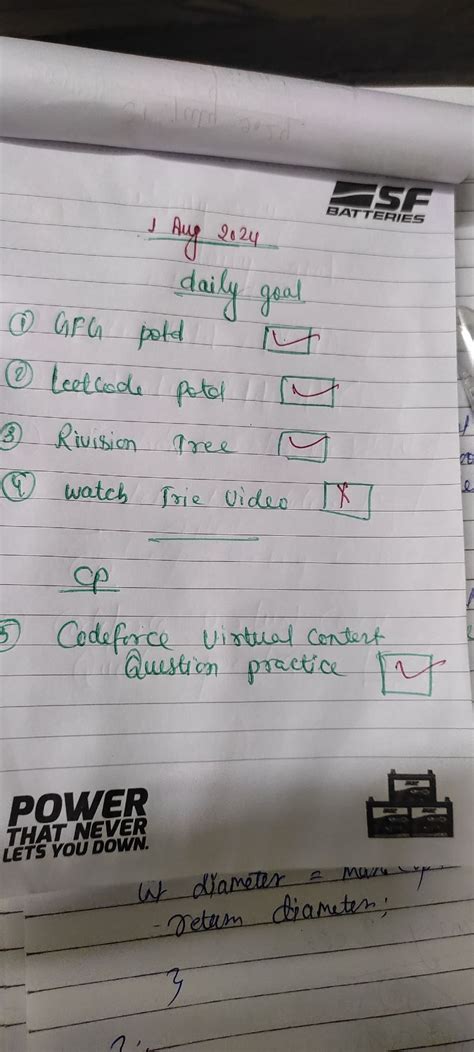 SF
BATTERIES
1 Aug 2024
daily goal
① GFG potd
② Leetcode potd
③ Rivision Tree
④ watch Trie video X
CP
5 Codeforce virtual contest
Question practice
POWER
THAT NEVER
LETS YOU DOWN.
diameter =
return diameter;
}